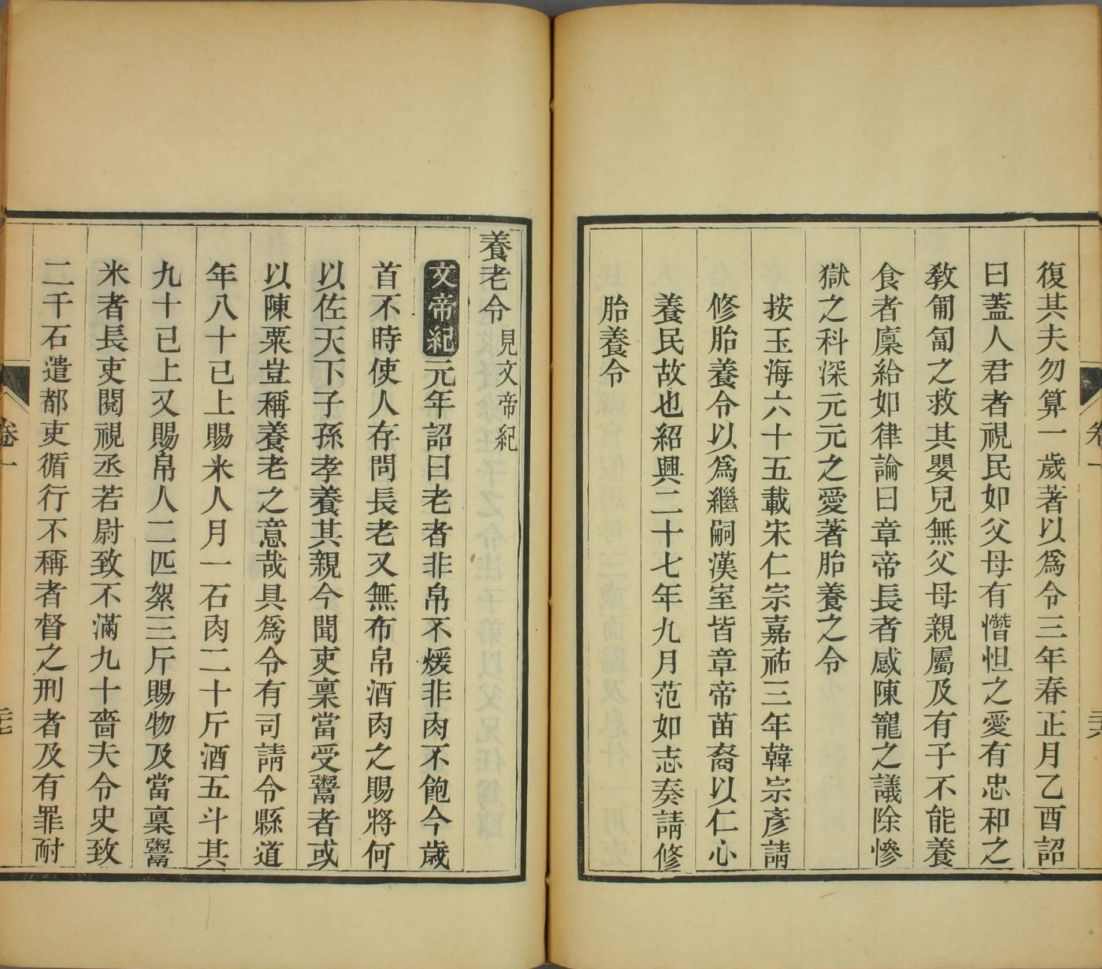 復其夫勿算一歲著以爲令三年春正月乙酉詔
曰蓋人君者視民如父母有憯怛之愛有忠和之
敎匍匐之救其嬰兒無父母親屬及有子不能養
食者廩給如律論曰章帝長者感陳寵之議除慘
獄之科深元元之愛著胎養之令
按玉海六十五載宋仁宗嘉祐三年韓宗彥請
修胎養令以爲繼嗣漢室皆章帝苗裔以仁心
養民故也紹興二十七年九月范如志奏請修
胎養令
養老令見文帝紀
文帝紀元年詔曰老者非帛不煖非肉不飽今歲
首不時使人存問長老又無布帛酒肉之賜將何
以佐天下子孫孝養其親今聞吏稟當受鬻者或
以陳粟豈稱養老之意哉具爲令有司請令縣道
年八十已上賜米人月一石肉二十斤酒五斗其
九十已上又賜帛人二匹絮三斤賜物及當稟鬻
米者長吏閱視丞若尉致不滿九十嗇夫令史致
二千石遣都吏循行不稱者督之刑者及有罪耐
卷一